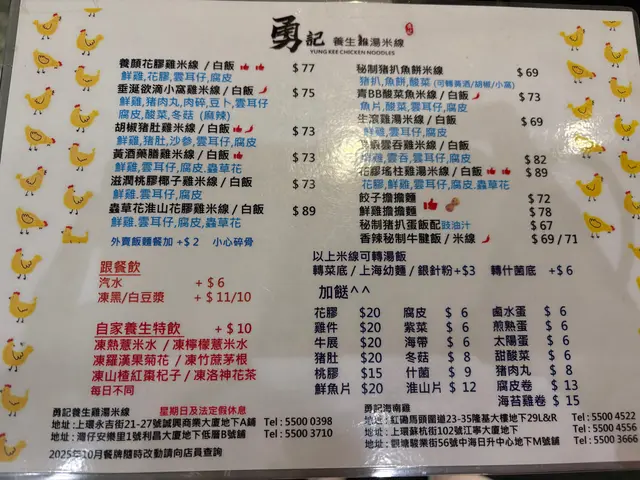 勇記 養生雞湯米線
YUNG KEE CHICKEN NOODLES
養顏花膠雞米線 / 白飯 $ 77
鮮雞,花膠,雲耳仔,腐皮
垂涎欲滴小窩雞米線 / 白飯 $ 75
鮮雞,豬肉丸,肉碎,豆卜,雲耳仔
腐皮,酸菜,冬菇 (麻辣)
胡椒豬肚雞米線 / 白飯 $ 73
鮮雞,豬肚,沙參,雲耳仔,腐皮
黃酒藥膳雞米線 / 白飯 $ 73
鮮雞,雲耳仔,腐皮,蟲草花
滋潤桃膠椰子雞米線 / 白飯 $ 73
鮮雞.雲耳仔,腐皮
蟲草花淮山花膠雞米線 / 白飯 $ 89
鮮雞.雲耳仔,腐皮,蟲草花
外賣飯麵餐加 +$ 2 小心碎骨
秘制豬扒魚餅米線 $ 69
豬扒,魚餅,酸菜 (可轉黃酒/胡椒/小窩)
青BB酸菜魚米線 / 白飯 $ 73
魚片,酸菜,雲耳仔,腐皮
生滾雞湯米線 / 白飯 $ 69
鮮雞,雲耳仔,腐皮
雲吞雞米線 / 白飯
雲吞,雲耳仔,腐皮 $ 82
花膠瑤柱雞湯米線 / 白飯 $ 89
花膠,鮮雞,雲耳仔,腐皮,蟲草花
餃子擔擔麵 $ 72
鮮雞擔擔麵 $ 78
秘制豬扒蛋飯配豉油汁 $ 67
香辣秘制牛腱飯 / 米線 $ 69 / 71
跟餐飲
汽水 + $ 6
凍黑/白豆漿 + $ 11/10
自家養生特飲 + $ 10
凍熱薏米水 / 凍檸檬薏米水
凍羅漢果菊花 / 凍竹蔗茅根
凍山楂紅棗杞子 / 凍洛神花茶
每日不同
以上米線可轉湯飯
轉菜底 / 上海幼麵 / 銀針粉+$3 轉什菌底 +$ 6
加餸^^
花膠 $20 腐皮 $ 6 鹵水蛋 $ 6
雞件 $20 紫菜 $ 6 煎熟蛋 $ 6
牛展 $20 海帶 $ 6 太陽蛋 $ 6
豬肚 $20 冬菇 $ 8 甜酸菜 $ 6
桃膠 $15 什菌 $ 9 豬肉丸 $ 8
鮮魚片 $20 淮山片 $ 12 腐皮卷 $ 13
海苔雞卷 $ 15
勇記養生雞湯米線 星期日及法定假休息
地址 : 上環永吉街21-27號誠興商業大廈地下A鋪 Tel : 5500 0398
地址 : 灣仔安樂里1號利昌大廈地下低層B號舖 Tel : 5500 3710
2025年10月餐牌隨時改動請向店員查詢
勇記海南雞
地址 : 紅磡馬頭圍道23-35隆基大樓地下29L&R Tel : 5500 4522
地址 : 上環蘇杭街102號江寧大廈地下 Tel : 5500 4556
地址 : 觀塘駿業街56號中海日升中心地下M號舖 Tel : 5500 3666